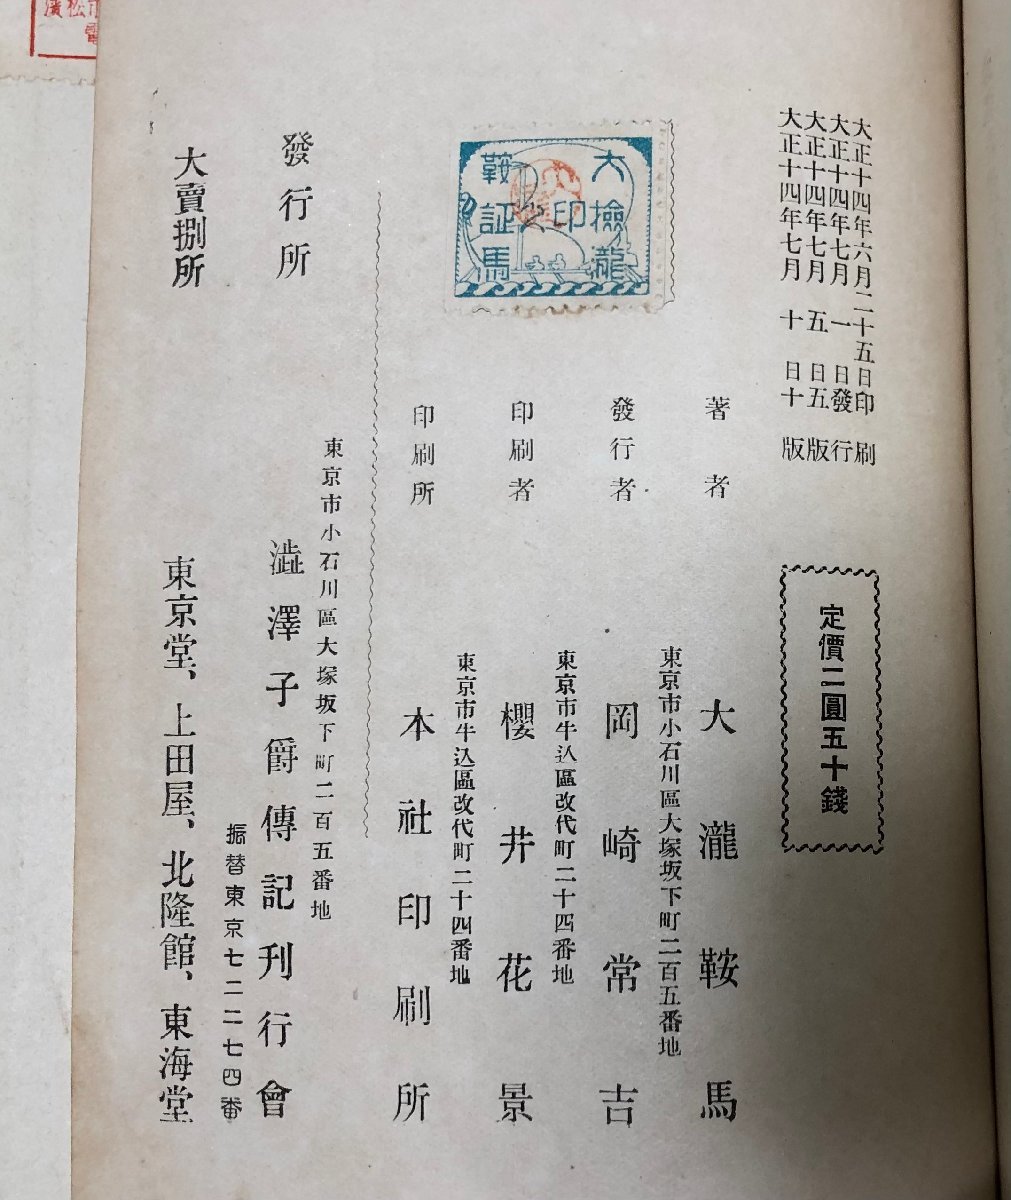 大正十四年六月二十五日印刷
大正十四年七月一日發行
大正十四年七月五日五版
大正十四年七月十日十版
定價二圓五十錢
著者
大瀧鞍馬
東京市小石川區大塚坂下町二百五番地
發行者
岡崎常吉
東京市牛込區改代町二十四番地
印刷者
櫻井花景
東京市牛込區改代町二十四番地
印刷所
本社印刷所
大瀧鞍馬
檢印
之証
東京市小石川區大塚坂下町二百五番地
發行所
澁澤子爵傳記刊行會
振替東京七二二七四番
大賣捌所
東京堂、上田屋、北隆館、東海堂